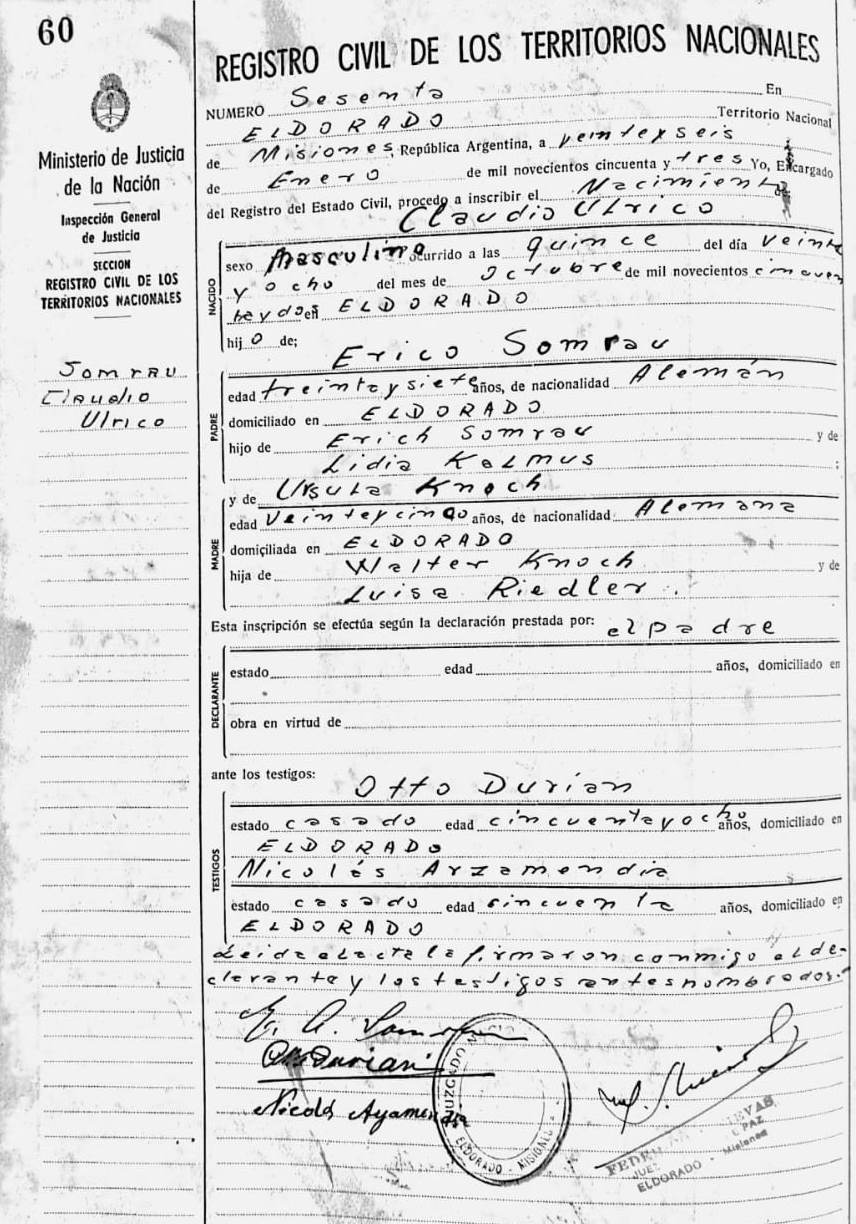 60
Ministerio de Justicia
de la Nación
Inspección General
de Justicia
SECCION
REGISTRO CIVIL DE LOS
TERRITORIOS NACIONALES
Somrau
Claudio
Ulrico
REGISTRO CIVIL DE LOS TERRITORIOS NACIONALES
NUMERO Sesenta En
ELDORADO Territorio Nacional
de Misiones, República Argentina, a veinteyseis
de Enero de mil novecientos cincuenta y tres Yo, Encargado
del Registro del Estado Civil, procedo a inscribir el Nacimiento
Claudio Ulrico
NACIDO
sexo Masculino ocurrido a las quince del día veinte
y ocho del mes de Octubre de mil novecientos cincuen
taydos en ELDORADO
hijo de;
Erico Somrau
PADRE
edad treintaysiete años, de nacionalidad Alemán
domiciliado en ELDORADO
hijo de Erich Somrau y de
Lidia Kalmus ;
y de Ursula Knoch
MADRE
edad Veinteycinqo años, de nacionalidad Alemana
domiciliada en ELDORADO
hija de Walter Knoch y de
Luisa Riedler.
Esta inscripción se efectúa según la declaración prestada por: el padre
DECLARANTE
estado edad años, domiciliado en
obra en virtud de
ante los testigos:
Otto Durian
TESTIGOS
estado casado edad cincuentayocho años, domiciliado en
ELDORADO
Nicolás Arzamendia
estado casado edad cincuenta años, domiciliado en
ELDORADO
Leida el acta la firmaron conmigo el de-
clarante y los testigos antes nombrados.-
E. A. Somrau
Durian
Nicolás Ayamendia
JUZGADO
ELDORADO - MISIONES
PAZ
ELDORADO - Misiones